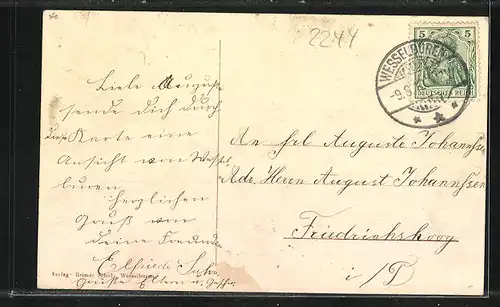 2244
WESSELBUREN
5 5
DEUTSCHES REICH
Liebe Auguste
sende Dich durch
diese Karte eine
Ansicht von Wessel
buren
Herzlichen
Gruß von
deine Freundin
Elfriede
Grüße Eltern u.
An Frl Auguste Johannssen
Adr. Herrn August Johannssen
Friedrichskoog
i/D
Verlag Wesselburen